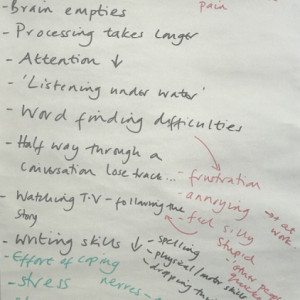 pain
- Brain empties
- Processing takes longer
- Attention ↓
- 'Listening under water'
- Word finding difficulties
- Half way through a
conversation lose track...
- frustration
- annoying
- feel silly
stupid
→ at
work
other people
- Watching T.V - following the
story
- Writing skills ↓
- spelling
- physical/motor skills
- dropping
- Effort of coping
- stress
nerves -